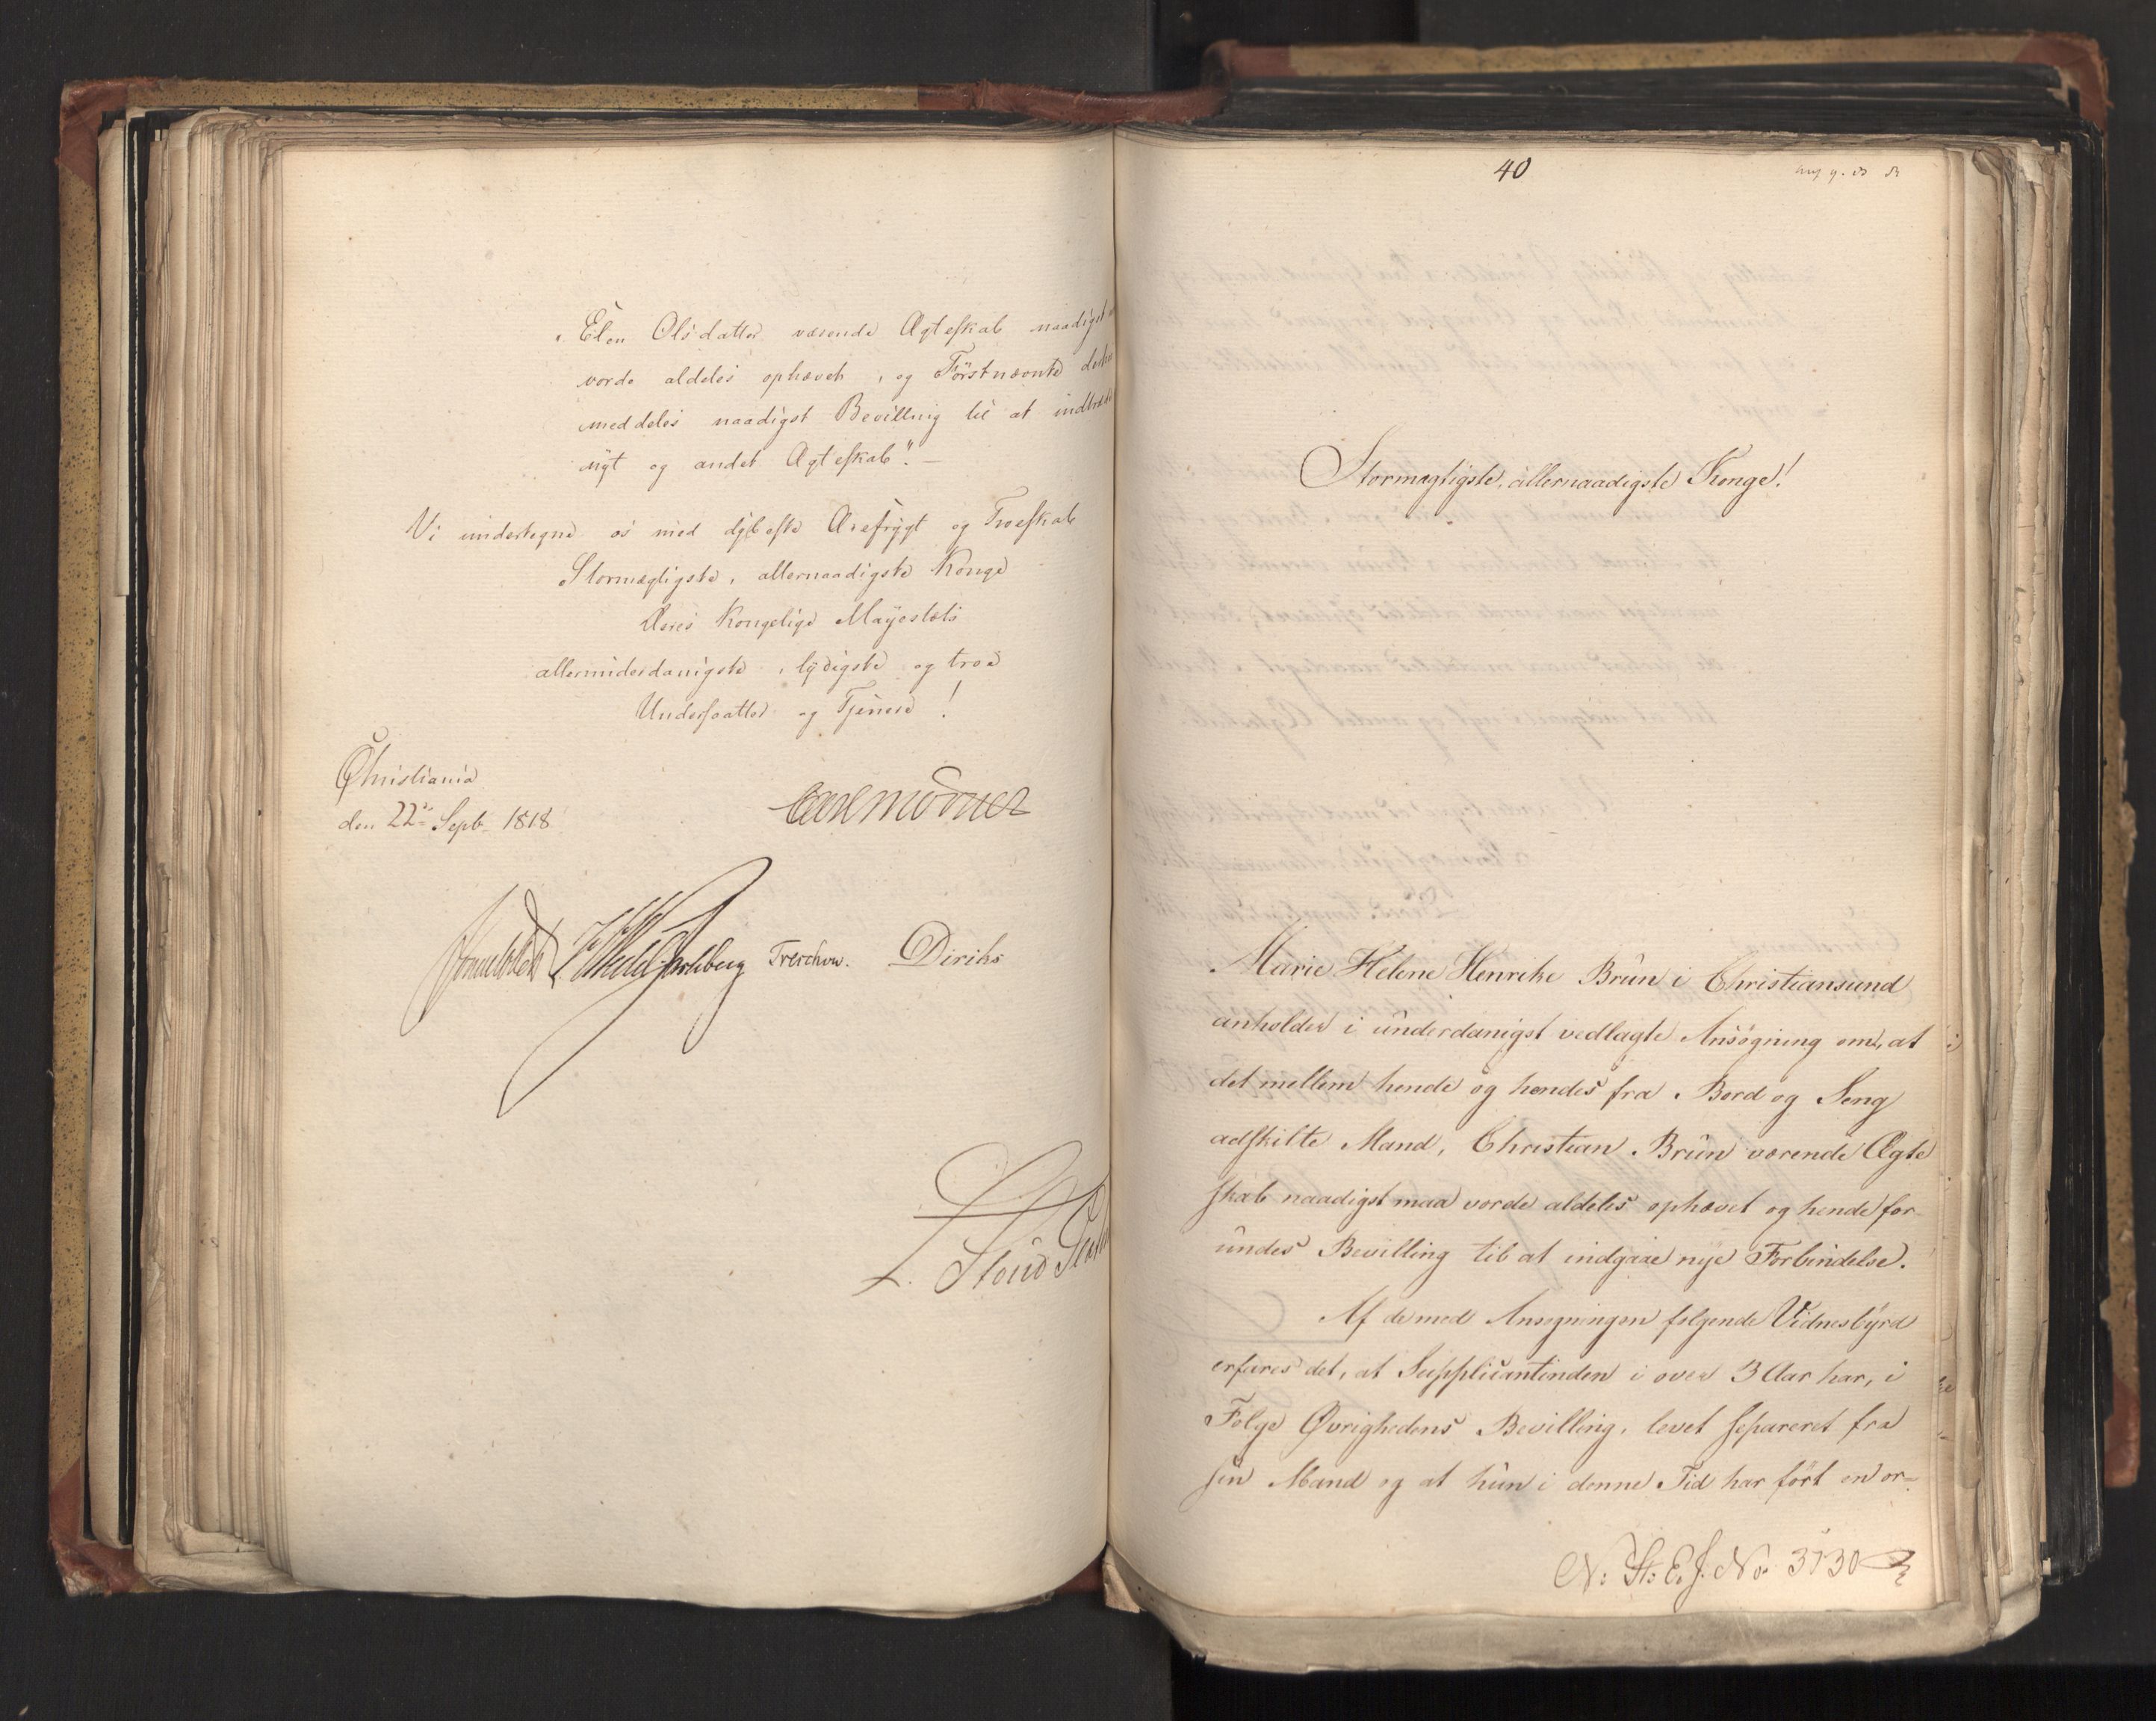 „Elen Olsdatter værende Ægteskab naadigst
vorde aldeles ophævet, og Förstnævnte
meddeles naadigst Bevilling til at indtræde
nyt og andet Ægteskab". —
Vi undertegne os med dybeste Ærefrygt og Troeskab
Stormægtigste, allernaadigste Konge
Deres Kongelige Mayestæts
allerunderdanigste, lydigste og troe
Undersaatter og Tjenere!
Christiania
den 22de Septb. 1818
Carl Mörner
Sommelhielm HWedel Jarlsberg Treschow. Diriks
L. Stoud
40
Stormægtigste, allernaadigste Konge!
Marie Helene Henrike Brûn i Christiansund
anholder i ûnderdanigst vedlagte Ansøgning om, at
det mellem hende og hendes fra Bord og Seng
adskilte Mand, Christian Brûn værende Ægte
skab naadigst maa vorde aldeles ophævet og hende for-
ûndes Bevilling til at indgaae nye Forbindelse.
Af de med Ansøgningen følgende Vidnesbyrd
erfares det, at Supplicantinden i over 3 Aar har, i
Følge Øvrighedens Bevilling, levet separeret fra
sin Mand og at hûn i denne Tid har ført en or=
N: St: E. J. No. 3730